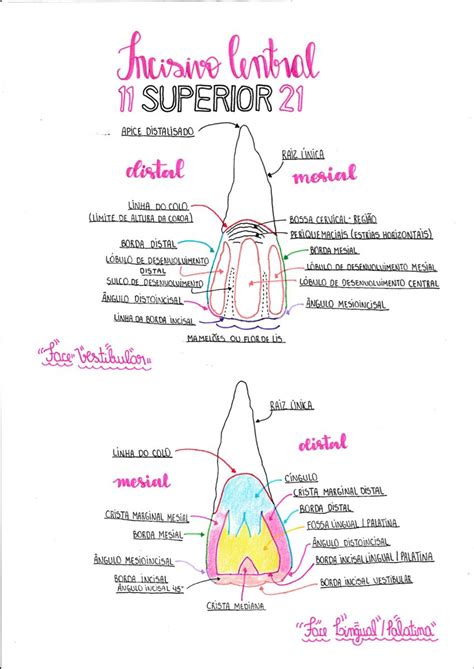 Incisivo Central
11 SUPERIOR 21
ÁPICE DISTALISADO
RAIZ ÚNICA
distal
mesial
LINHA DO COLO
(LIMITE DE ALTURA DA COROA)
BOSSA CERVICAL - REGIÃO
PERIQUEMACIAIS (ESTRIAS HORIZONTAIS)
BORDA DISTAL
BORDA MESIAL
LÓBULO DE DESENVOLVIMENTO
DISTAL
LÓBULO DE DESENVOLVIMENTO MESIAL
SULCO DE DESENVOLVIMENTO
LÓBULO DE DESENVOLVIMENTO CENTRAL
ÂNGULO DISTOINCISAL
ÂNGULO MESIOINCISAL
LINHA DA BORDA INCISAL
MAMELÕES OU FLOR DE LIS
"Face Vestibular"
RAIZ ÚNICA
LINHA DO COLO
distal
mesial
CÍNGULO
CRISTA MARGINAL DISTAL
BORDA DISTAL
CRISTA MARGINAL MESIAL
FOSSA LINGUAL / PALATINA
BORDA MESIAL
ÂNGULO DISTOINCISAL
ÂNGULO MESIOINCISAL
BORDA INCISAL LINGUAL / PALATINA
BORDA INCISAL
ÂNGULO INCISAL 45°
BORDA INCISAL VESTIBULAR
CRISTA MEDIANA
"Face Lingual/Palatina"